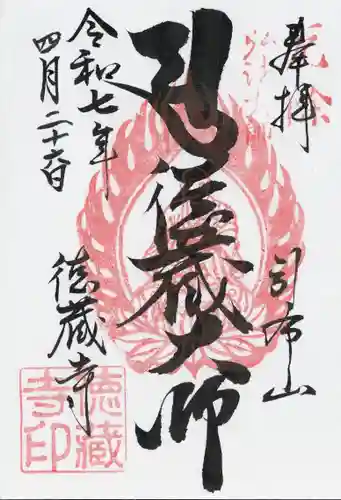 奉拝
引布山
徳蔵大師
令和七年
四月二十六日
徳蔵寺
徳蔵
寺印